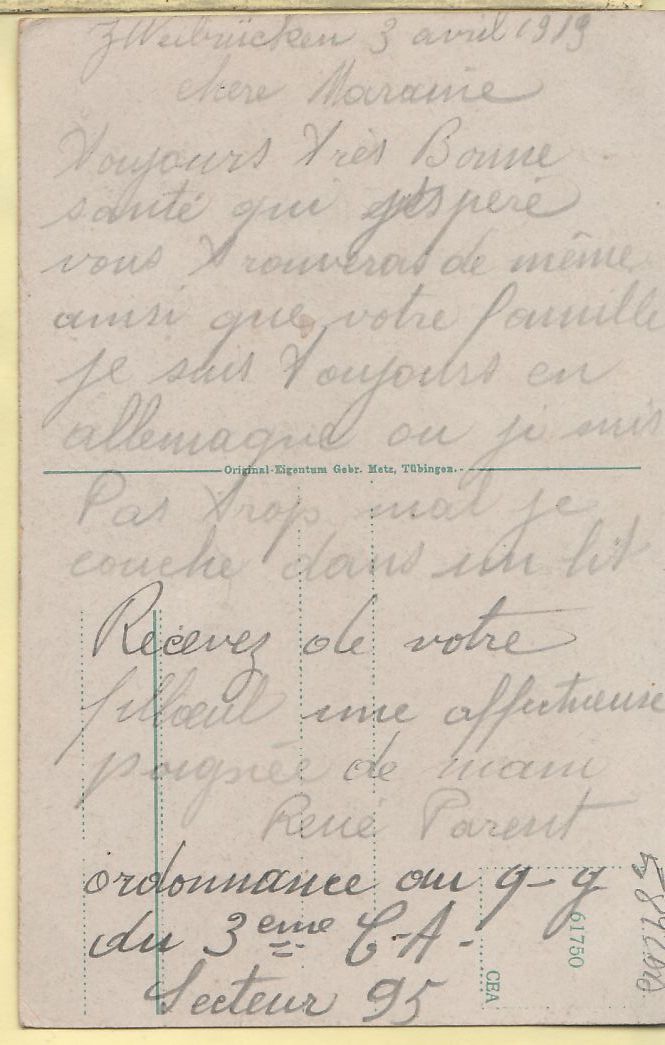 Zweibrücken 3 avril 1919
chere Maraine
Toujours très Bonne
santé qui j'espère
vous trouveras de même
ainsi que votre famille
je suis toujours en
allemagne ou je suis
Original-Eigentum Gebr. Metz, Tübingen.
Pas trop mal je
couche dans un lit
Recevez de votre
filloeul une affectueuse
poignée de main
René Parent
ordonnance au q-g
du 3eme C-A-
Secteur 95
61750
CEA